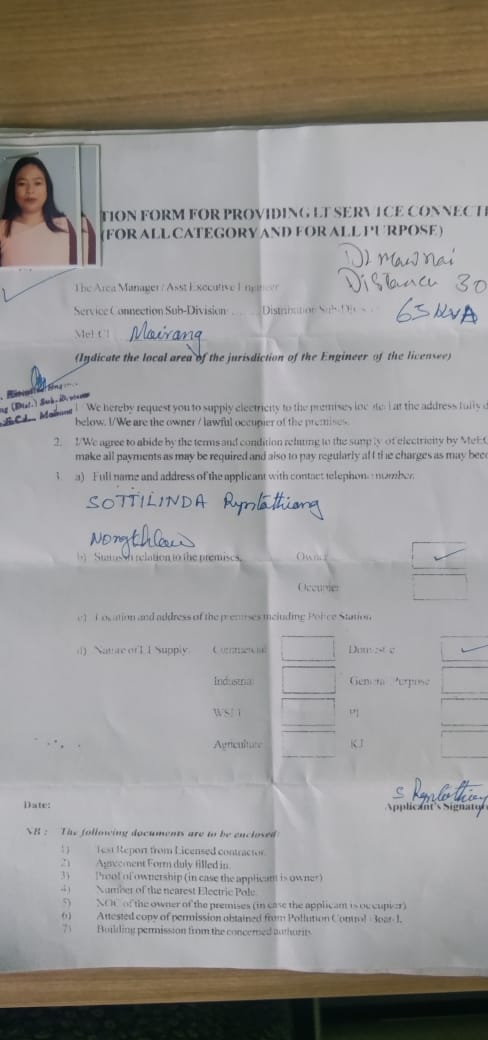 TION FORM FOR PROVIDING LT SERVICE CONNECTI
(FOR ALL CATEGORY AND FOR ALL PURPOSE)
Distance 30
The Area Manager / Asst Executive Engineer
63 KVA
Service Connection Sub-Division ........ Distribution Sub-Div
MeECL Mairang
(Indicate the local area of the jurisdiction of the Engineer of the licensee)
1 We hereby request you to supply electricity to the premises located at the address fully d
below. I/We are the owner / lawful occupier of the premises.
2. I/We agree to abide by the terms and condition relating to the supply of electricity by MeEC
make all payments as may be required and also to pay regularly all the charges as may bee
3. a) Full name and address of the applicant with contact telephone number.
SOTTILINDA Ryntathiang
Nongkhlaw
b) Status in relation to the premises. Owner
Occupier
c) Location and address of the premises including Police Station.
d) Nature of LT Supply: Commercial Domestic
Industrial General Purpose
WSLT PL
Agriculture KJ
Date:
Applicant's Signatur
NB : The following documents are to be enclosed:
1) Test Report from Licensed contractor.
2) Agreement Form duly filled in.
3) Proof of ownership (in case the applicant is owner)
4) Number of the nearest Electric Pole.
5) NOC of the owner of the premises (in case the applicant is occupier)
6) Attested copy of permission obtained from Pollution Control Board.
7) Building permission from the concerned authority.